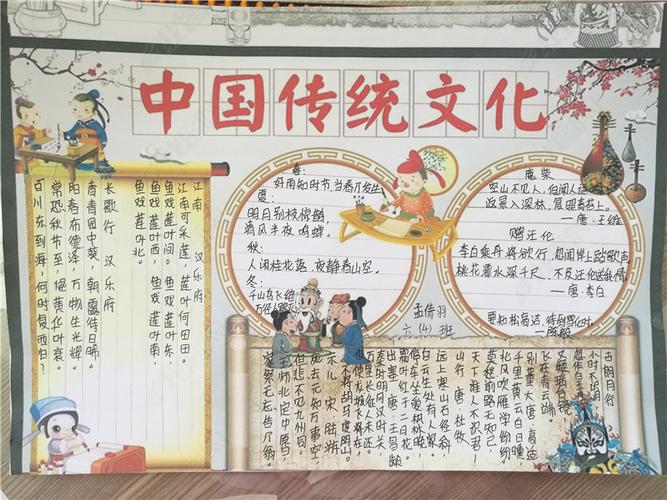 中国传统文化
江南 汉乐府
江南可采莲，莲叶何田田。
鱼戏莲叶间。鱼戏莲叶东，
鱼戏莲叶西，鱼戏莲叶南，
鱼戏莲叶北。
长歌行 汉乐府
青青园中葵，朝露待日晞。
阳春布德泽，万物生光辉。
常恐秋节至，焜黄华叶衰。
百川东到海，何时复西归？
春：
好雨知时节，当春乃发生
夏：
明月别枝惊鹊，
清风半夜鸣蝉。
秋：
人闲桂花落，夜静春山空。
冬：
千山鸟飞绝
万径人踪灭
鹿柴
空山不见人，但闻人语
返景入深林，复照青苔上。
—唐·王维
赠汪伦
李白乘舟将欲行，忽闻岸上踏歌声
桃花潭水深千尺，不及汪伦送我情。
—唐·李白
要知松高洁，待到雪化时
—陈毅
孟倩羽
六（4）班
古朗月行
小时不识月
呼作白玉盘
又疑瑶台镜
飞在青云端。
别董大 唐 高适
千里黄云白日曛
北风吹雁雪纷纷
莫愁前路无知己
天下谁人不识君！
山行 唐·杜牧
远上寒山石径斜
白云生处有人家。
停车坐爱枫林晚，
霜叶红于二月花。
出塞 唐 王昌龄
秦时明月汉时关
万里长征人未还。
但使龙城飞将在，
不教胡马度阴山。
示儿 宋 陆游
死去元知万事空，
但悲不见九州同。
王师北定中原日，
家祭无忘告乃翁。